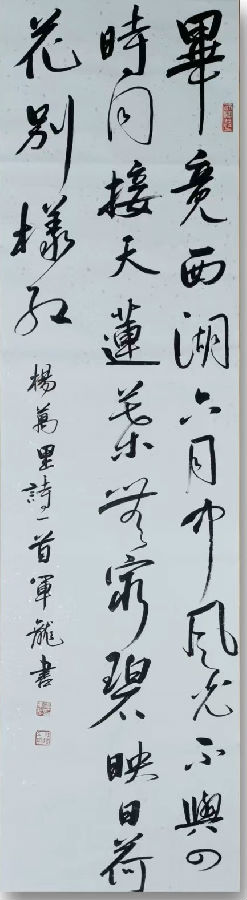 畢竟西湖六月中風光不與四
時同接天蓮葉無窮碧映日荷
花別樣紅
楊萬里詩一首軍龍書